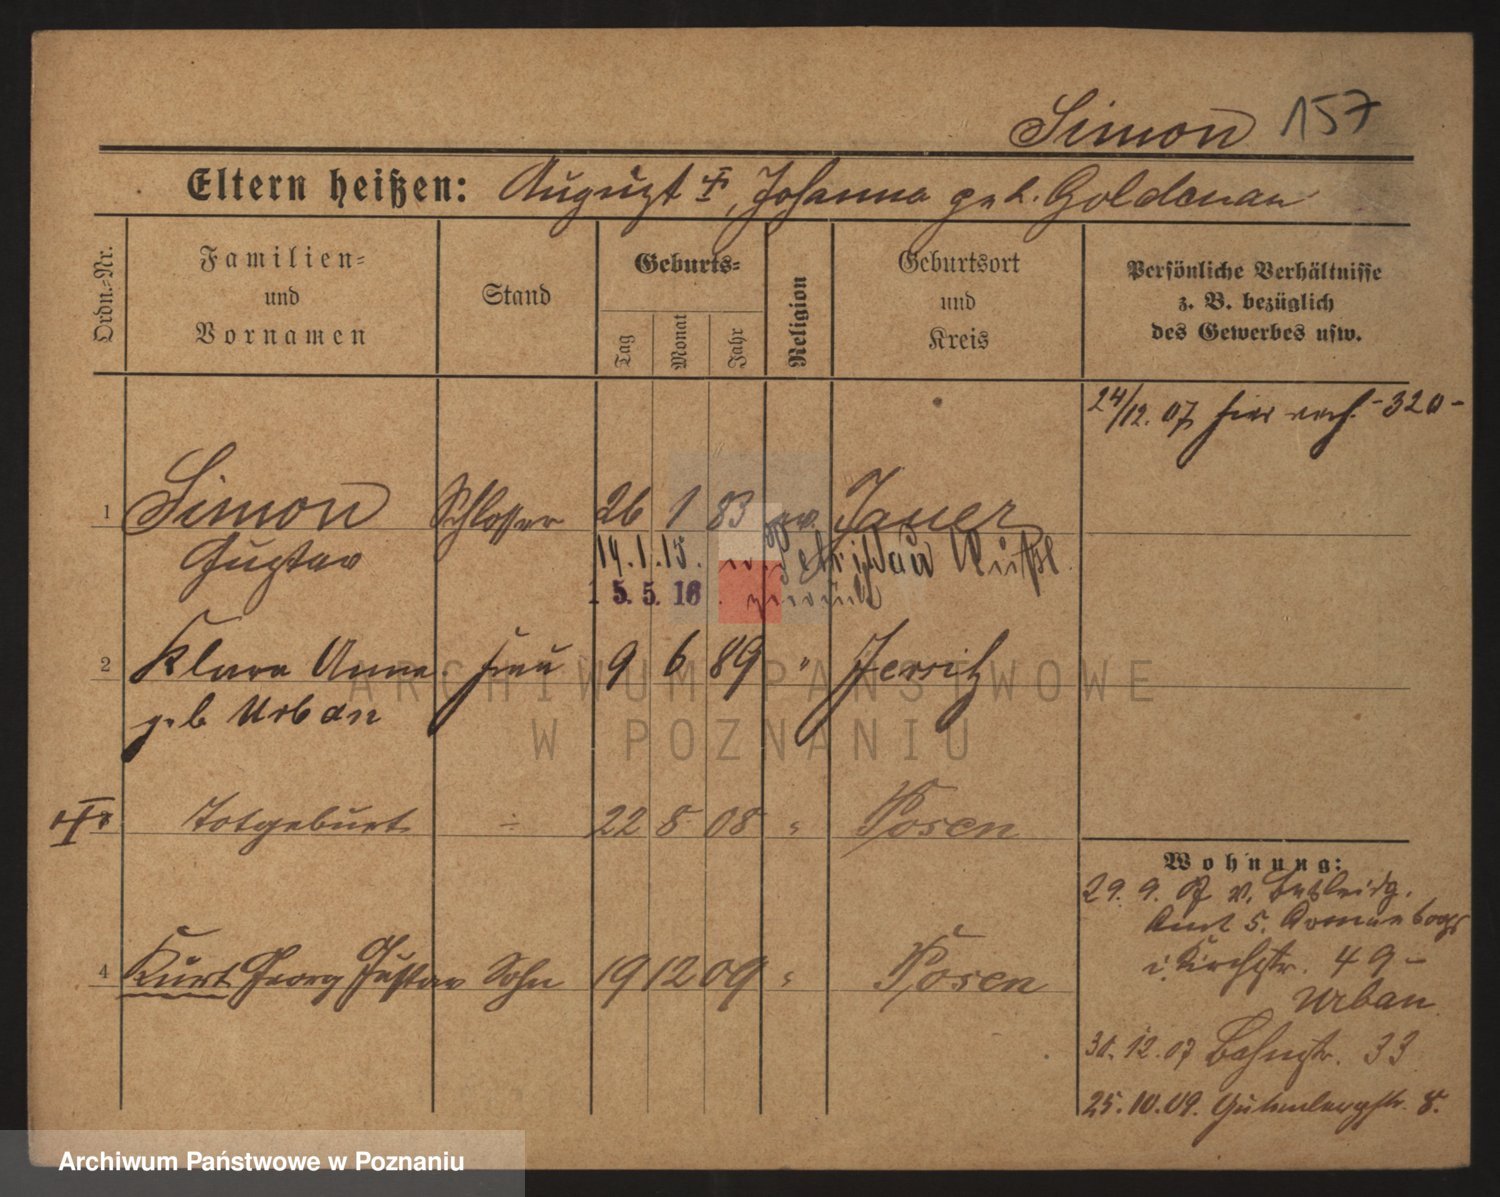 Simon 157
Eltern heißen: August ‡, Johanna geb. Goldenau
Ordn.-Nr.
Familien-
und
Vornamen
Stand
Geburts-
Tag
Monat
Jahr
Religion
Geburtsort
und
Kreis
Persönliche Verhältnisse
z. B. bezüglich
des Gewerbes usw.
24/12. 07 hier verh. -320-
1 Simon Schlosser 26 1 83 ev. Jauer
Gustav
14.1.15.
15.5.16
2 Klara Anna Frau 9 6 89 " Jersitz
geb Urban
Totgeburt ÷ 22 8 08 " Posen
4 Kurt Georg Gustav Sohn 19 12 09 " Posen
Wohnung:
29. 9. 07 v.
Amt 5.
Kirchstr. 49 -
Urban
30. 12. 07 Bahnstr. 33
25. 10. 09. Gutenbergstr. 8.
ARCHIWUM PAŃSTWOWE
W POZNANIU
Archiwum Państwowe w Poznaniu